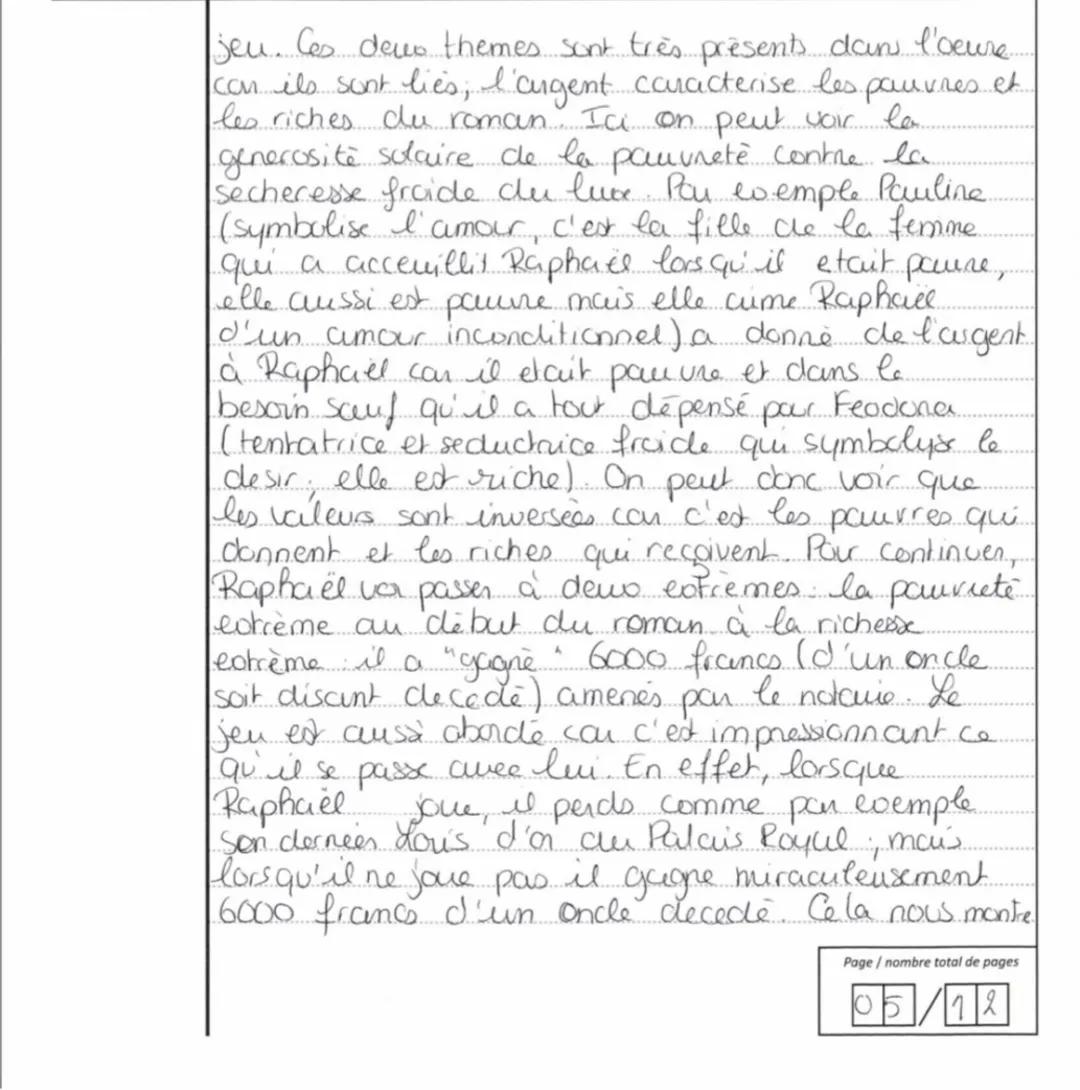 jeu. Ces deux themes sont très présents dans l'oeuvre
car ils sont liés; l'argent caracterise les pauvres et
les riches du roman. Ici on peut voir la
generosité solaire de la pauvreté contre la
secheresse froide du luxe. Par exemple Pauline
(symbolise l'amour, c'est la fille de la femme
qui a acceuillit Raphaël lorsqu'il etait pauvre,
elle aussi est pauvre mais elle aime Raphaël
d'un amour inconditionnel) a donné de l'argent
à Raphaël car il etait pauvre et dans le
besoin sauf qu'il a tout dépensé par Feodora
(tentatrice et seductrice froide qui symbolyse le
desir; elle est riche). On peut donc voir que
les valeurs sont inversées car c'est les pauvres qui
donnent et les riches qui reçoivent. Pour continuer,
Raphaël va passer à deux extrèmes: la pauvreté
extrème au début du roman à la richesse
extrème: il a "gagné" 6000 francs (d'un oncle
soit disant decedé) amenés par le notaire. Le
jeu est aussi abordé car c'est impressionnant ce
qu'il se passe avec lui. En effet, lorsque
Raphaël joue, il perds comme par exemple
son derneier Louis d'or au Palais Royal; mais
lorsqu'il ne joue pas il gagne miraculeusement
6000 francs d'un oncle decedé. Cela nous montre
Page / nombre total de pages
05/12